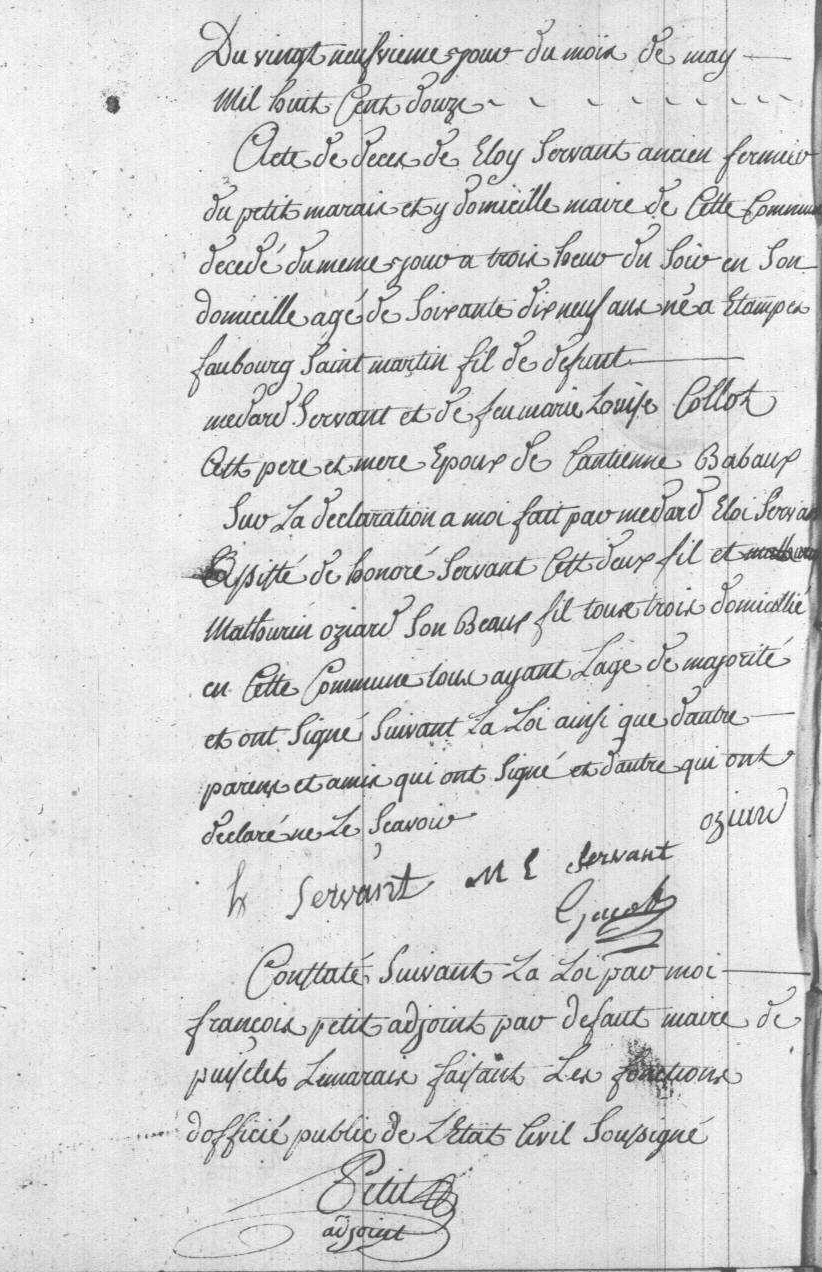 Du vingt neufvieme jour du mois de may
Mil huit Cent douze
Acte de deces de Eloy Servant ancien fermier
du petit marais et y domicille maire de Cette Commune
decedé du meme jour a trois heur du Soir en Son
domicille agé de Soixante dix neuf ans né a Etampes
faubourg Saint martin fil de defunt
medard Servant et de feu marie Louise Collot
Cest pere et mere Epoux de Cantienne Babaux
Sur La declaration a moi fait par medard Eloi Servant
de honoré Servant Cest deux fil et
Mathurin oziard Son Beaux fil tous trois domicillié
en Cette Commune tous ayant Lage de majorité
et ont Signé Suivant La Loi ainsi que dautre
parens et amis qui ont Signé et d'autre qui ont
declaré ne Le Scavoir
oziard
h Servant M E Servant
Gjacob
Constaté Suivant La Loi par moi
francois petit adjoint par defaut maire de
puiselet Lemarais faisant Les fonctions
dofficié public de L'Etat Civil Soussigné
Petit
adjoint